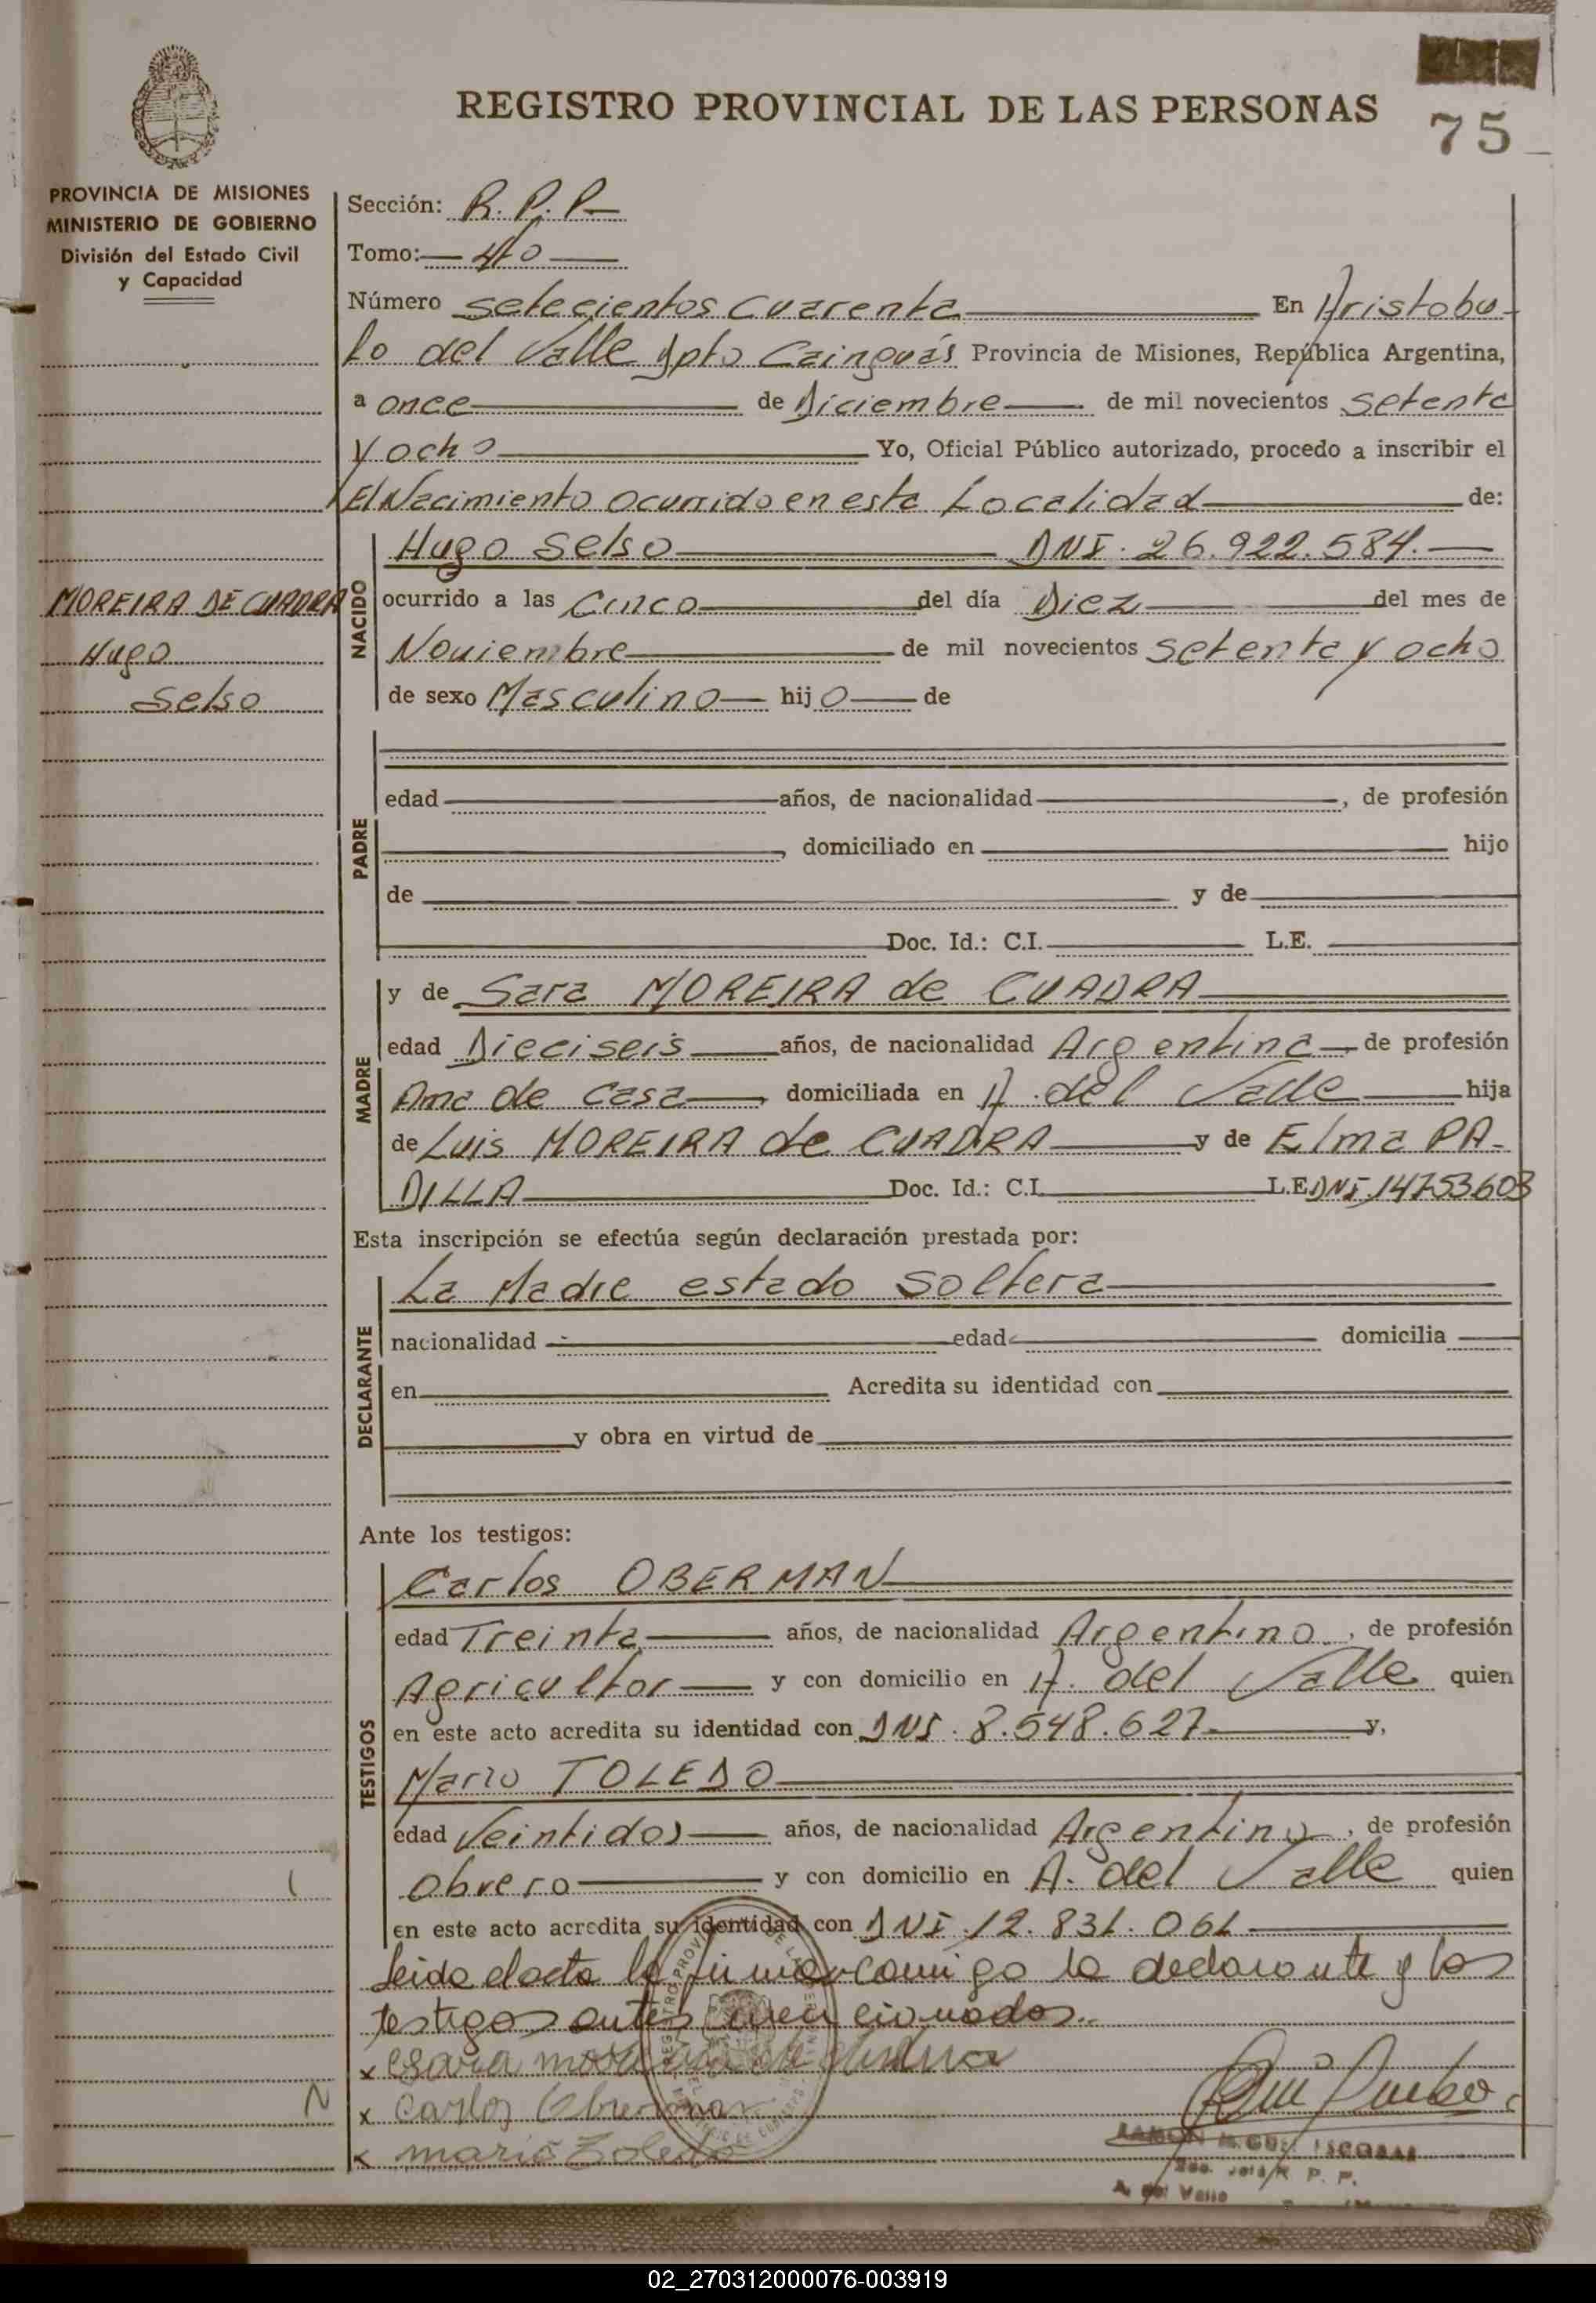 REGISTRO PROVINCIAL DE LAS PERSONAS
75
PROVINCIA DE MISIONES
MINISTERIO DE GOBIERNO
División del Estado Civil
y Capacidad
Sección: R. P. P.
Tomo: 4to
Número setecientos cuarenta En Aristobu-
lo del Valle Dpto Cainguás Provincia de Misiones, República Argentina,
a once de Diciembre de mil novecientos setenta
y ocho Yo, Oficial Público autorizado, procedo a inscribir el
El Nacimiento ocurrido en esta Localidad de:
MOREIRA DE CUADRA
Hugo
Selso
NACIDO
Hugo Selso DNI. 26.922.584.
ocurrido a las Cinco del día Diez del mes de
Noviembre de mil novecientos setenta y ocho
de sexo Masculino hijo de
PADRE
edad años, de nacionalidad , de profesión
, domiciliado en hijo
de y de
Doc. Id.: C.I. L.E.
MADRE
y de Sara MOREIRA de CUADRA
edad Dieciseis años, de nacionalidad Argentina de profesión
Ama de Casa , domiciliada en A. del Valle hija
de Luis MOREIRA de CUADRA y de Elma PA-
DILLA Doc. Id.: C.I. L.E. DNI. 14753603
Esta inscripción se efectúa según declaración prestada por:
DECLARANTE
La Madre estado soltera
nacionalidad edad domicilia
en Acredita su identidad con
y obra en virtud de
Ante los testigos:
TESTIGOS
Carlos OBERMAN
edad Treinta años, de nacionalidad Argentino , de profesión
Agricultor y con domicilio en A. del Valle quien
en este acto acredita su identidad con DNI. 8.548.627. y,
Mario TOLEDO
edad Veintidos años, de nacionalidad Argentino , de profesión
Obrero y con domicilio en A. del Valle quien
en este acto acredita su identidad con DNI. 12.831.061
Leida el acta la firman conmigo la declarante y los
testigos antes mencionados.
x Sara
x Carlos
x mario Toledo
RAMON MIGUEL ESCOBAR
R. P. P.
A. del Valle
02_270312000076-003919